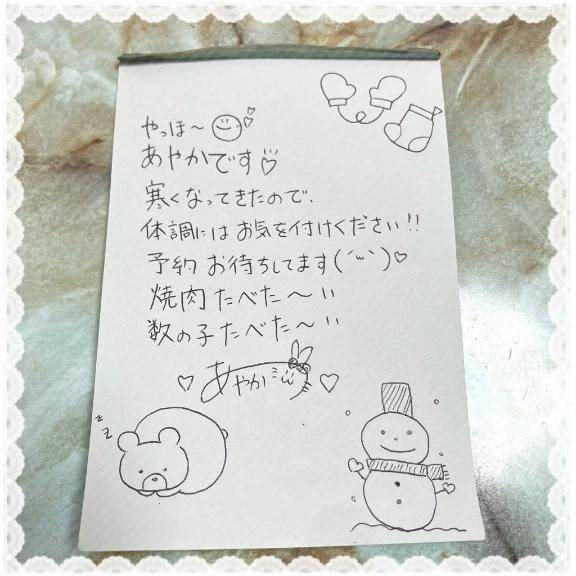 やっほ〜
あやかです♡
寒くなってきたので、
体調にはお気を付けください!!
予約お待ちしてます(´ω`)♡
焼肉たべた〜い
数の子たべた〜い
♡ あやか ♡
z z